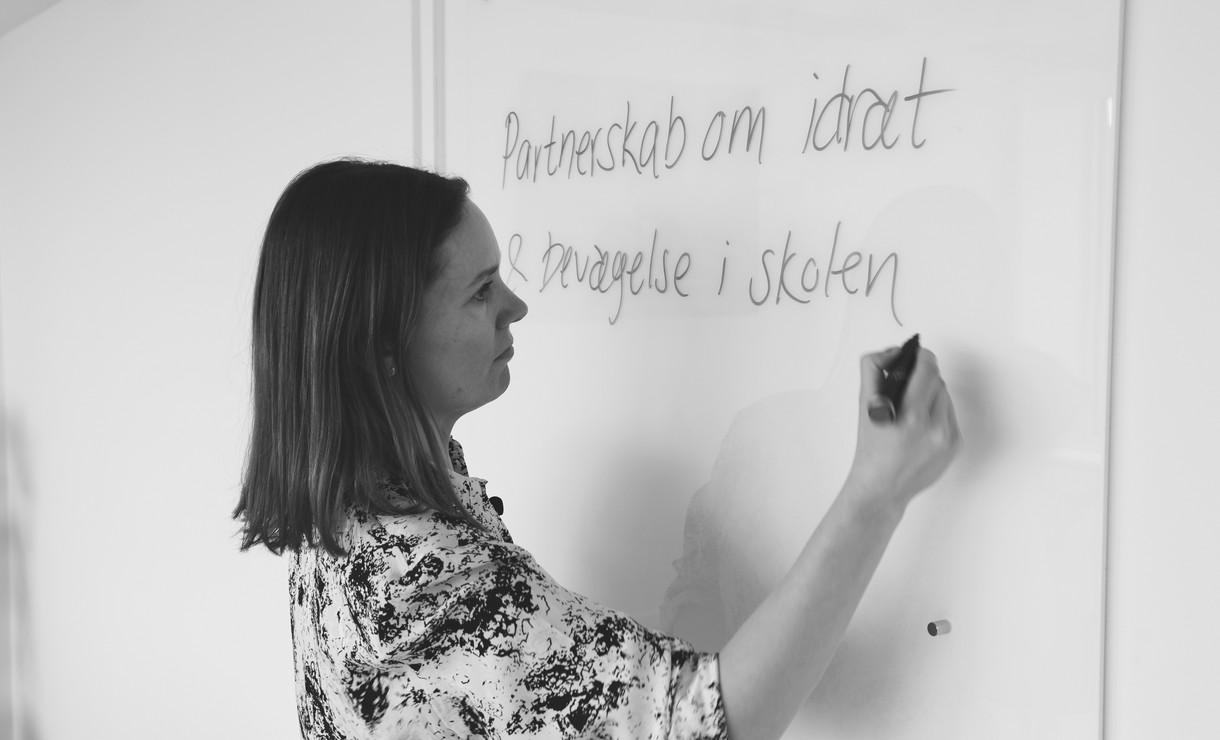 Partnerskab om idræt
& bevægelse i skolen